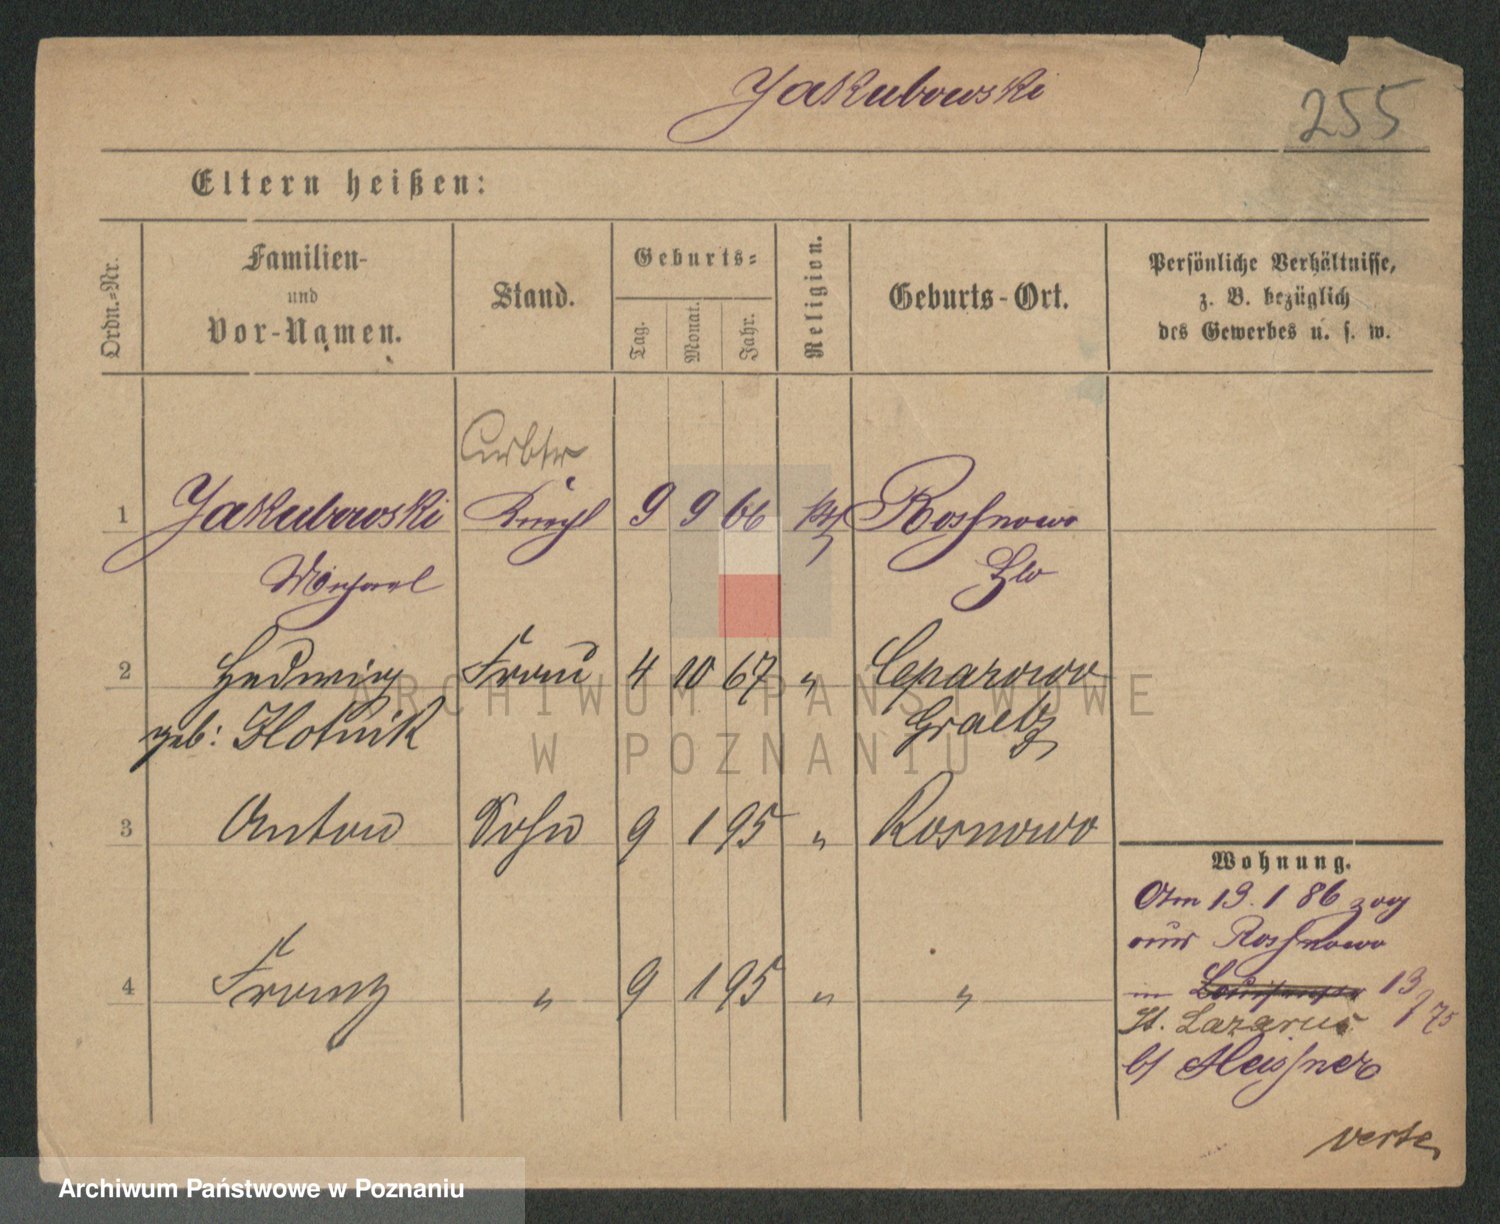 Yakubowski
255
Eltern heißen:
Ordn.=Nr.
Familien-
und
Vor-Namen.
Stand.
Geburts=
Tag.
Monat.
Jahr.
Religion.
Geburts-Ort.
Persönliche Verhältnisse,
z. B. bezüglich
des Gewerbes u. s. w.
1 Yakubowski 9 9 66 Rosſnowo
2 Hedwig Frau 4 10 67 " Ceparowo
geb: Graetz
3 Anton Sohn 9 1 95 " Rosnowo
4 Franz " 9 1 95 " "
Wohnung.
Am 13. 1 86 zog
aus Rosſnowo
in 13
St. Lazarus
b/
verte
ARCHIWUM PAŃSTWOWE
W POZNANIU
Archiwum Państwowe w Poznaniu